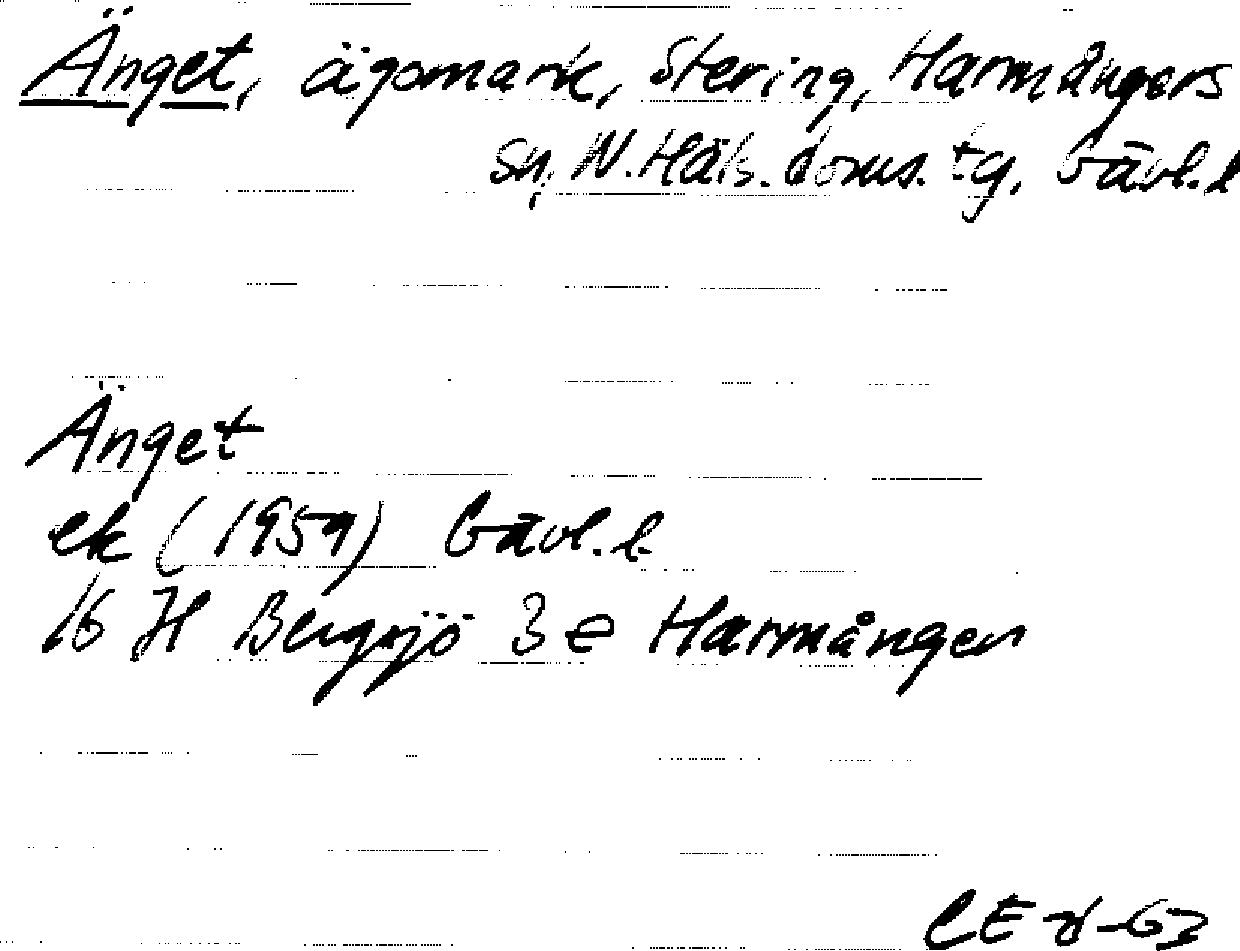 Änget, ägomark, Stering, Harmångers
sn, N. Häls. doms. tg. Gävl. l
Änget
ek (1959) Gävl. l.
16 H Bergsjö 3 e Harmånger
CE